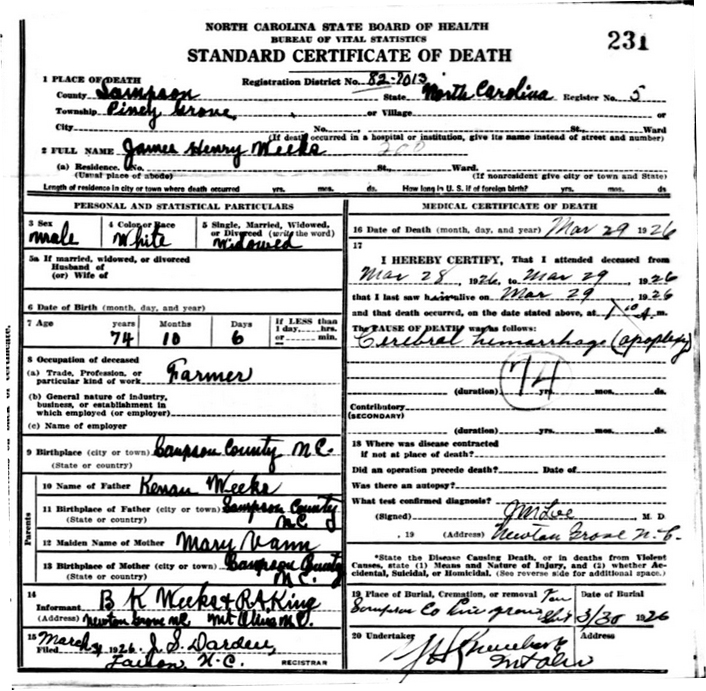 NORTH CAROLINA STATE BOARD OF HEALTH
BUREAU OF VITAL STATISTICS
STANDARD CERTIFICATE OF DEATH
231
1 PLACE OF DEATH
Registration District No. 82-7013
County Sampson State North Carolina Register No. 5
Township Piney Grove, or Village or
City No. St., Ward
(If death occurred in a hospital or institution, give its name instead of street and number)
2 FULL NAME James Henry Weeks
(a) Residence. No. St., Ward.
(Usual place of abode) (If nonresident give city or town and State)
Length of residence in city or town where death occurred yrs. mos. ds. How long in U. S. if of foreign birth? yrs. mos. ds.
PERSONAL AND STATISTICAL PARTICULARS
3 Sex 4 Color or Race 5 Single, Married, Widowed,
or Divorced (write the word)
male White Widowed
5a If married, widowed, or divorced
Husband of
(or) Wife of
6 Date of Birth (month, day, and year)
7 Age years Months Days If LESS than
1 day, hrs.
or min.
74 10 6
8 Occupation of deceased
(a) Trade, Profession, or
particular kind of work Farmer
(b) General nature of industry,
business, or establishment in
which employed (or employer)
(c) Name of employer
9 Birthplace (city or town) Sampson County N.C.
(State or country)
Parents
10 Name of Father Kenan Weeks
11 Birthplace of Father (city or town) Sampson County
(State or country) N.C.
12 Maiden Name of Mother Mary Vann
13 Birthplace of Mother (city or town) Sampson County
(State or country) N.C.
14
Informant B K Weeks & R.A. King
Newton Grove NC Mt Olive N.C.
15
Filed March 31 1926. J. S. Darden,
Faison, N.C. REGISTRAR
MEDICAL CERTIFICATE OF DEATH
16 Date of Death (month, day, and year) Mar 29 1926
17
I HEREBY CERTIFY, That I attended deceased from
Mar 28, 1926, to Mar 29, 1926
that I last saw him alive on Mar 29, 1926
and that death occurred, on the date stated above, at 1 10 A. m.
The CAUSE OF DEATH was as follows:
Cerebral hemorrhage (apoplexy)
74
(duration) yrs. mos. ds.
Contributory
(SECONDARY)
(duration) yrs. mos. ds.
18 Where was disease contracted
if not at place of death?
Did an operation precede death? Date of
Was there an autopsy?
What test confirmed diagnosis?
(Signed) J M Lee M. D
, 19 (Address) Newton Grove N.C.
*State the Disease Causing Death, or in deaths from Violent
Causes, state (1) Means and Nature of Injury, and (2) whether Ac-
cidental, Suicidal, or Homicidal. (See reverse side for additional space.)
19 Place of Burial, Cremation, or removal Date of Burial
Sampson Co 3/30 1926
20 Undertaker Address